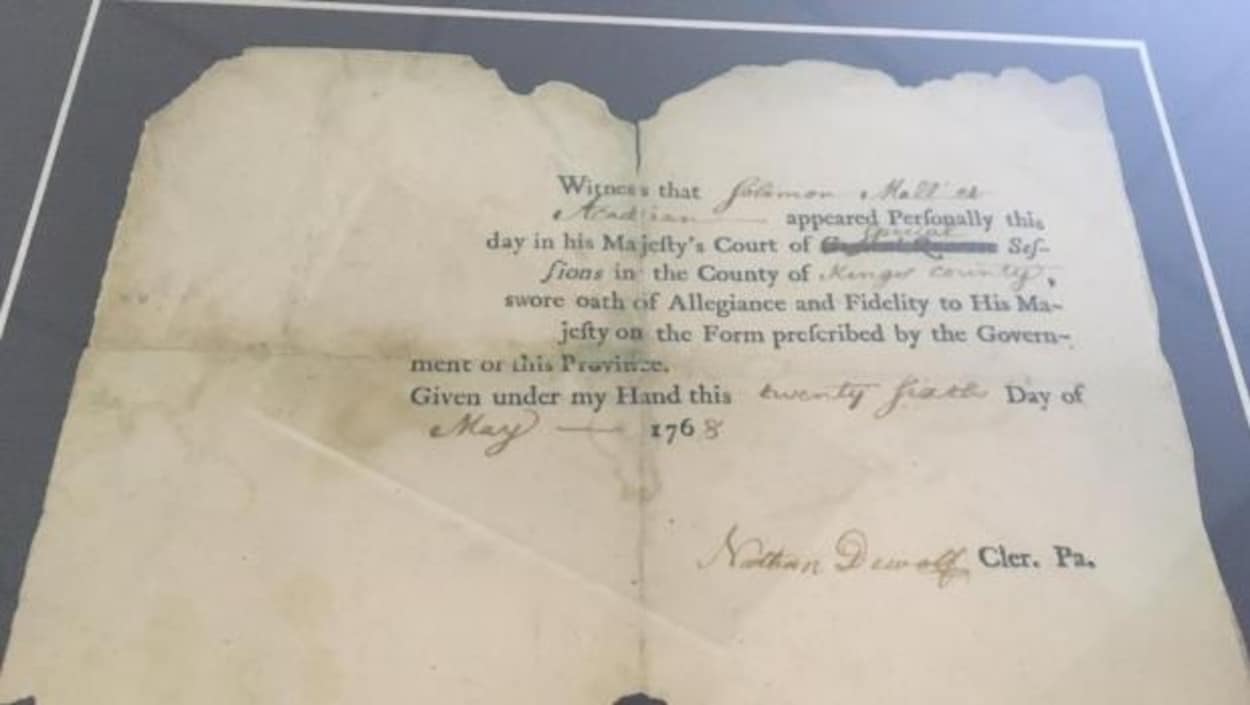 Witness that Solomon Mallet
Acadian — appeared Perſonally this
day in his Majeſty's Court of Special Seſ-
ſions in the County of Kings County,
swore oath of Allegiance and Fidelity to His Ma-
jeſty on the Form preſcribed by the Govern-
ment or this Province.
Given under my Hand this twenty ſixth Day of
May — 1768
Nathan Dewolf Cler. Pa.